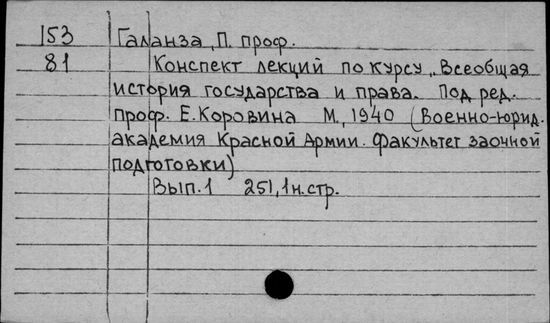 153 Галанза, П. проф.
81 Конспект лекций по курсу „Всеобщая
история государства и права. Под ред.
проф. Е. Коровина М, 1940 (Военно-юрид.
академия Красной Армии. Факультет заочной
подготовки)
Вып. 1 251, 1 н. стр.